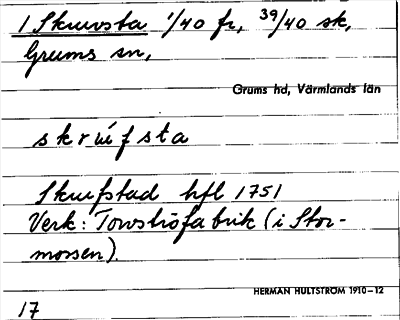 1 Skruvsta 1/40 fr, 39/40 sk,
Grums sn,
Grums hd, Värmlands län
skrúfsta
Skrufstad hfl 1751
Verk: Torvströfabrik (i Stor-
mossen).
HERMAN HULTSTRÖM 1910–12
17